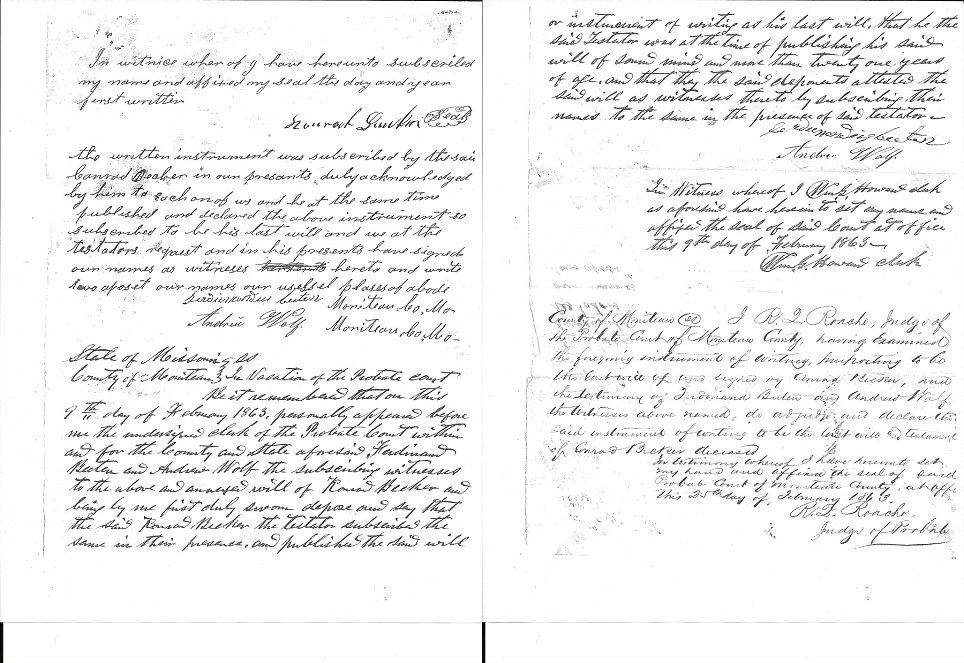 In witnice wher of I have hereunto subscribed
my name and affixed my seal the day and year
first written
Seal
the written instrument was subscribed by the sai
Conrad Becker in our presants, duly acknowhedged
by him to Each on of us and he at the same time
published and declared the above instrument so
subscribed to be his last will and we at the
testators request and in his presents have signed
our names as witneses hereto and wrote
two aposit our names our plases of abode
Moniteau Co, Mo
Andrew Wolf. Moniteau, Co, Mo-
State of Missouri ss
County of Moniteau In Vacation of the Probate court
Be it remembered that on this
9th day of February 1863, personally appeared before
me the undersigned clerk of the Probate Court within
and for the County and State aforesaid, Ferdinand
Beuten and Andrew Wolf the subscribing witnesses
to the above and annexed will of Konrad Becker and
being by me first duly sworn depose and say that
the said Konrad Becker the testator subscribed the
same in their presence, and published the said will
or instrument of writing as his last will, that he the
said Testator was at the time of publishing his said
will of sound mind and more than twenty one years
of age, and that they the said deponents attested the
said will as witnesses thereto by subscribing their
names to the same in the presence of said testator-
Andrew Wolf
In Witness whereof I Wm G. Howard clerk
as aforesaid have herein to set my name and
affixed the seal of said Court at office
this 9th day of February 1863-
Wm G. Howard clerk
County of Moniteau ss I R. Q. Roache, Judge of
the Probate Court of Moniteau County, having examined
the foregoing instrument of writing, purporting to be
the last will of and signed by Conrad Becker, and
the testimony of Ferdinand Buten and Andrew Wolf
the witnesses above named, do adjudge and declare the
said instrument of writing to be the last will and testament
of Conrad Becker deceased
In testimony whereof I have hereunto set
my hand and affixed the seal of said
Probate Court of Moniteau County, at offi
this 25th day of, February 1863.
R. Q. Roache.
Judge of Probate